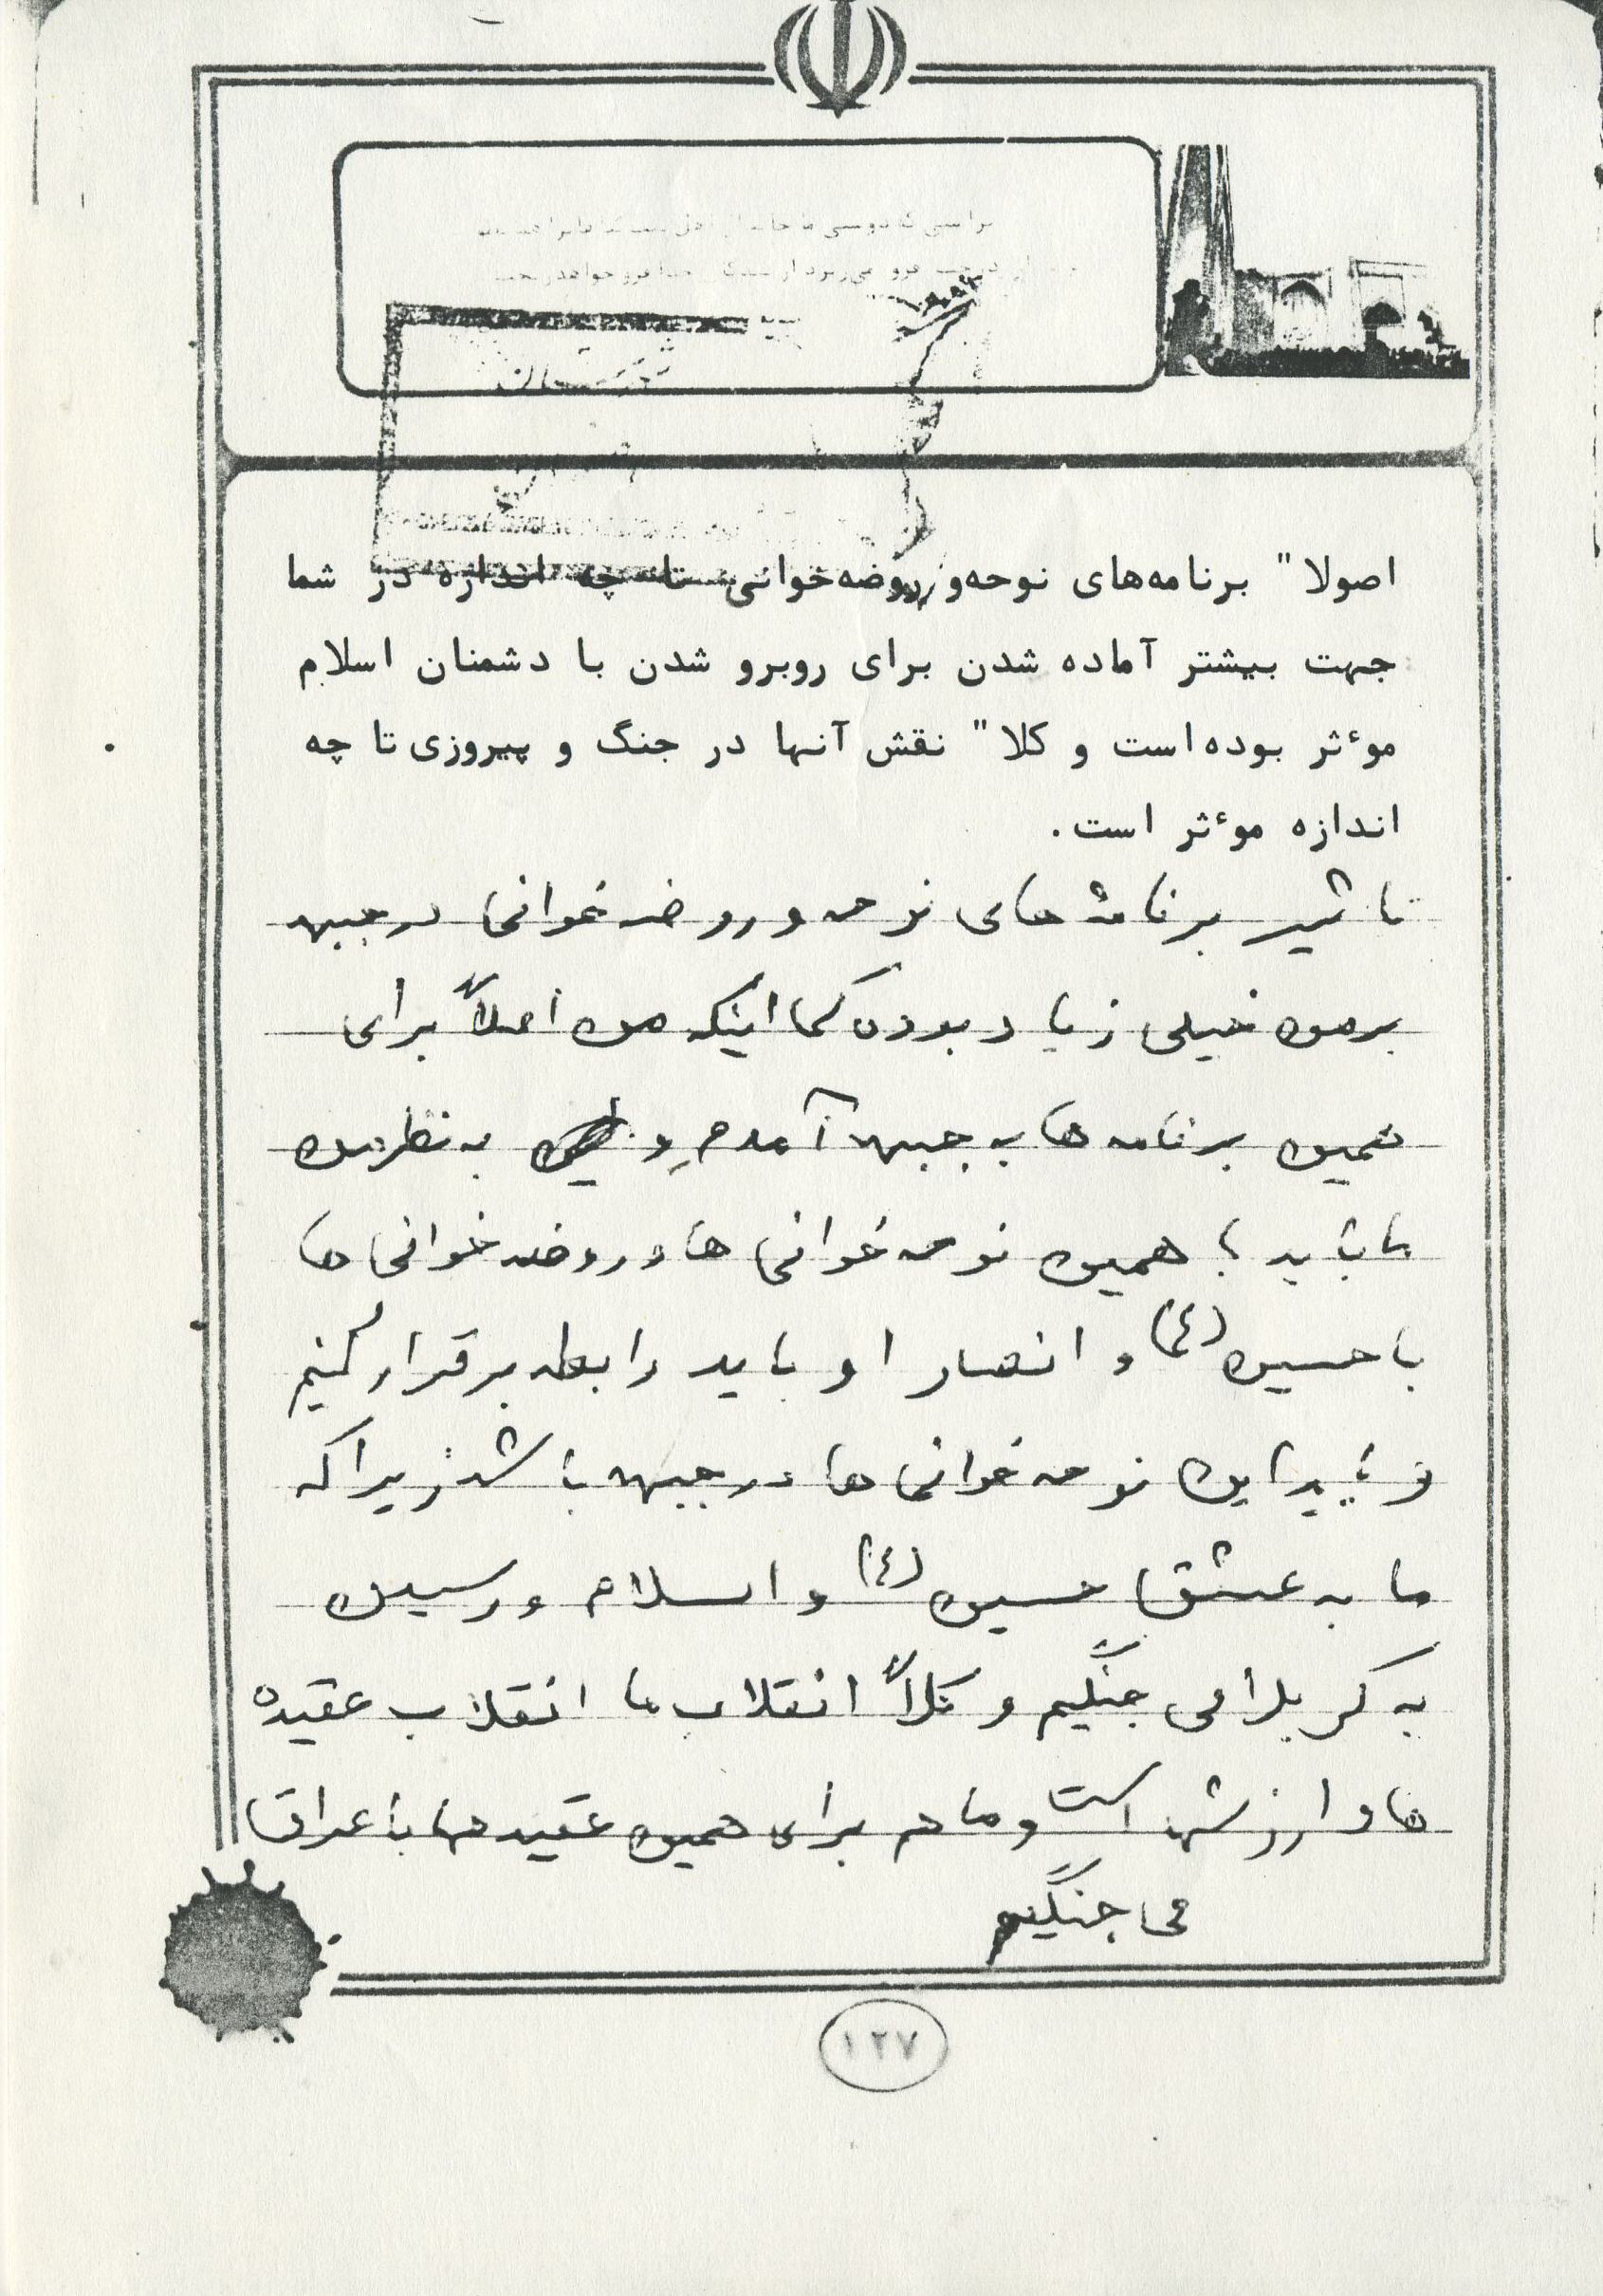 اصولا" برنامه‌های نوحه‌و روضه‌خوانی تا چه اندازه در شما
جهت بیشتر آماده شدن برای روبرو شدن با دشمنان اسلام
موٴثر بوده‌است و کلا" نقش آنها در جنگ و پیروزی تا چه
اندازه موٴثر است.
تاثیر برنامه های نوحه و روضه خوانی در جبهه
بر من خیلی زیاد بوده کما اینکه من اصلاً برای
همین برنامه ها به جبهه آمدم و به نظر من
ما باید با همین نوحه خوانی ها و روضه خوانی ها
با حسین (ع) و انصار او باید رابطه برقرار کنیم
و باید این نوحه خوانی ها در جبهه باشد زیرا که
ما به عشق حسین (ع) و اسلام و رسیدن
به کربلا می جنگیم و کلاً انقلاب ما انقلاب عقیده
ها و ارزشها است و ما هم برای همین عقیده ها با عراق
می جنگیم
۱۲۷